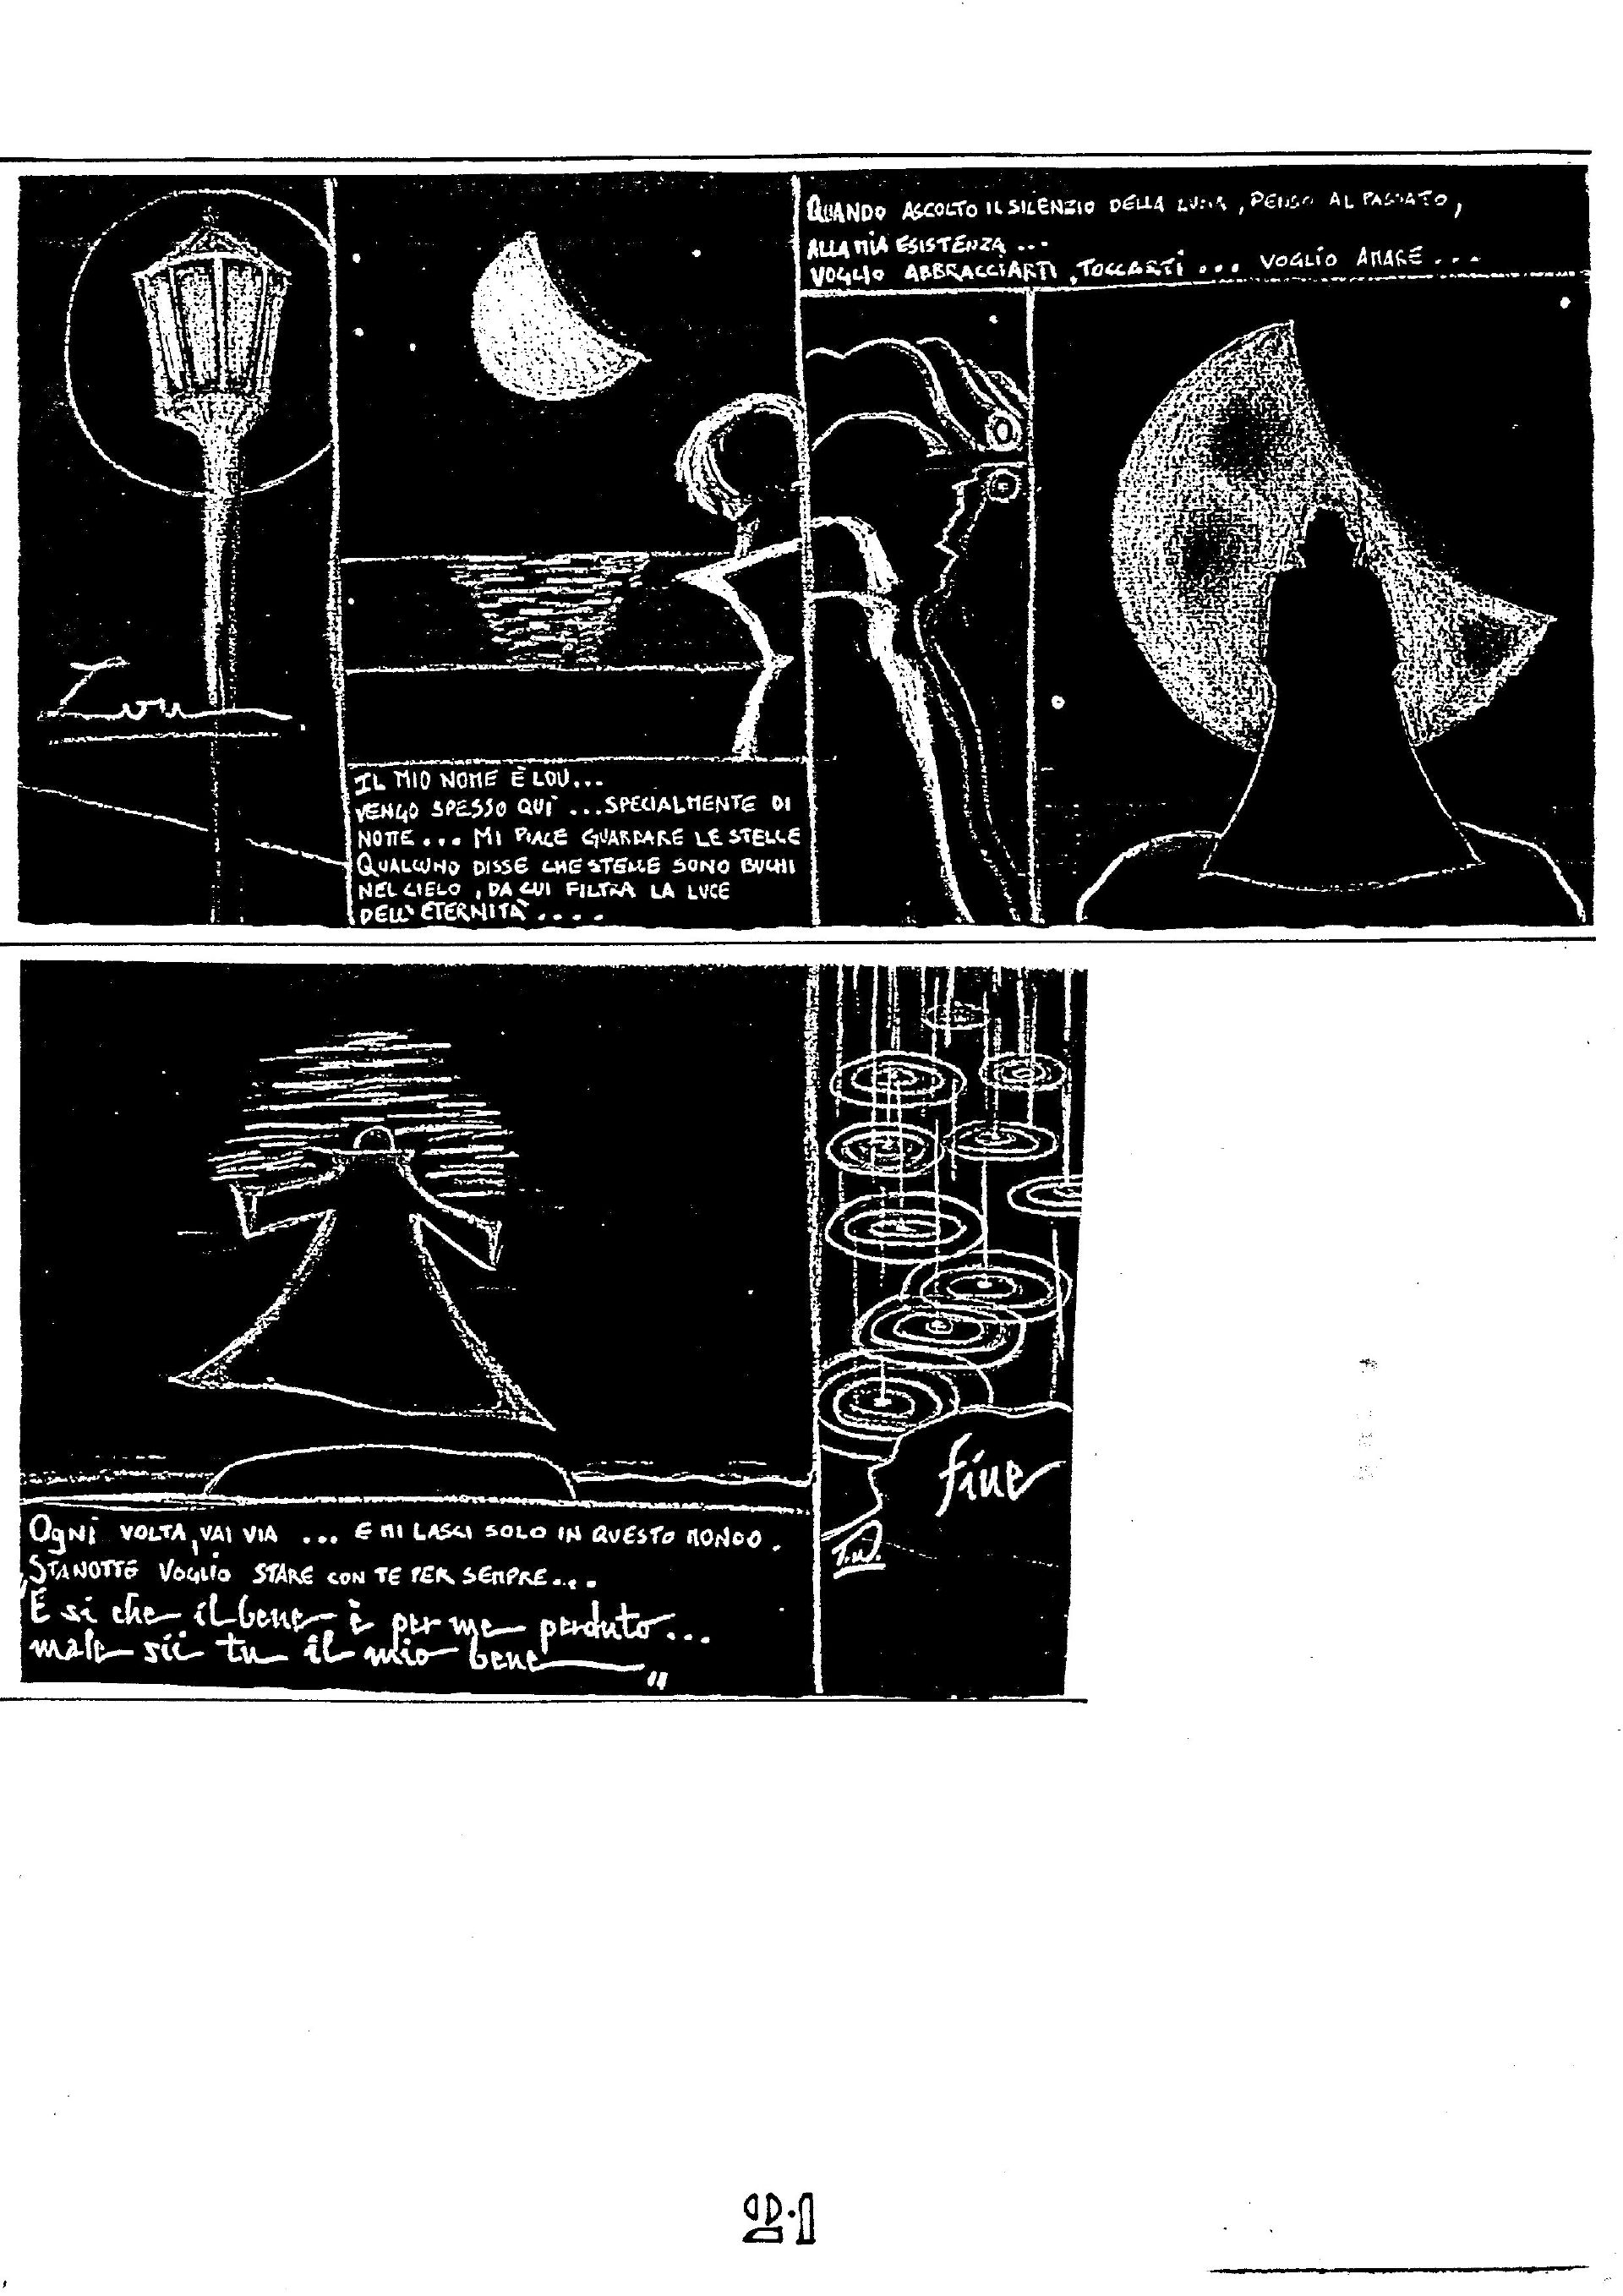 Lou.
IL MIO NOME È LOU...
VENGO SPESSO QUÌ ...SPECIALMENTE DI
NOTTE... MI PIACE GUARDARE LE STELLE
QUALCUNO DISSE CHE STELLE SONO BUCHI
NEL CIELO, DA CUI FILTRA LA LUCE
DELL'ETERNITÀ....
QUANDO ASCOLTO IL SILENZIO DELLA LUNA, PENSO AL PASSATO,
ALLA MIA ESISTENZA...
VOGLIO ABBRACCIARTI, TOCCARTI... VOGLIO AMARE...
OGNI VOLTA, VAI VIA ... E MI LASCI SOLO IN QUESTO MONDO.
STANOTTE VOGLIO STARE CON TE PER SEMPRE...
"E si che il bene è per me perduto...
male sii tu il mio bene"
fine
T.W.
21